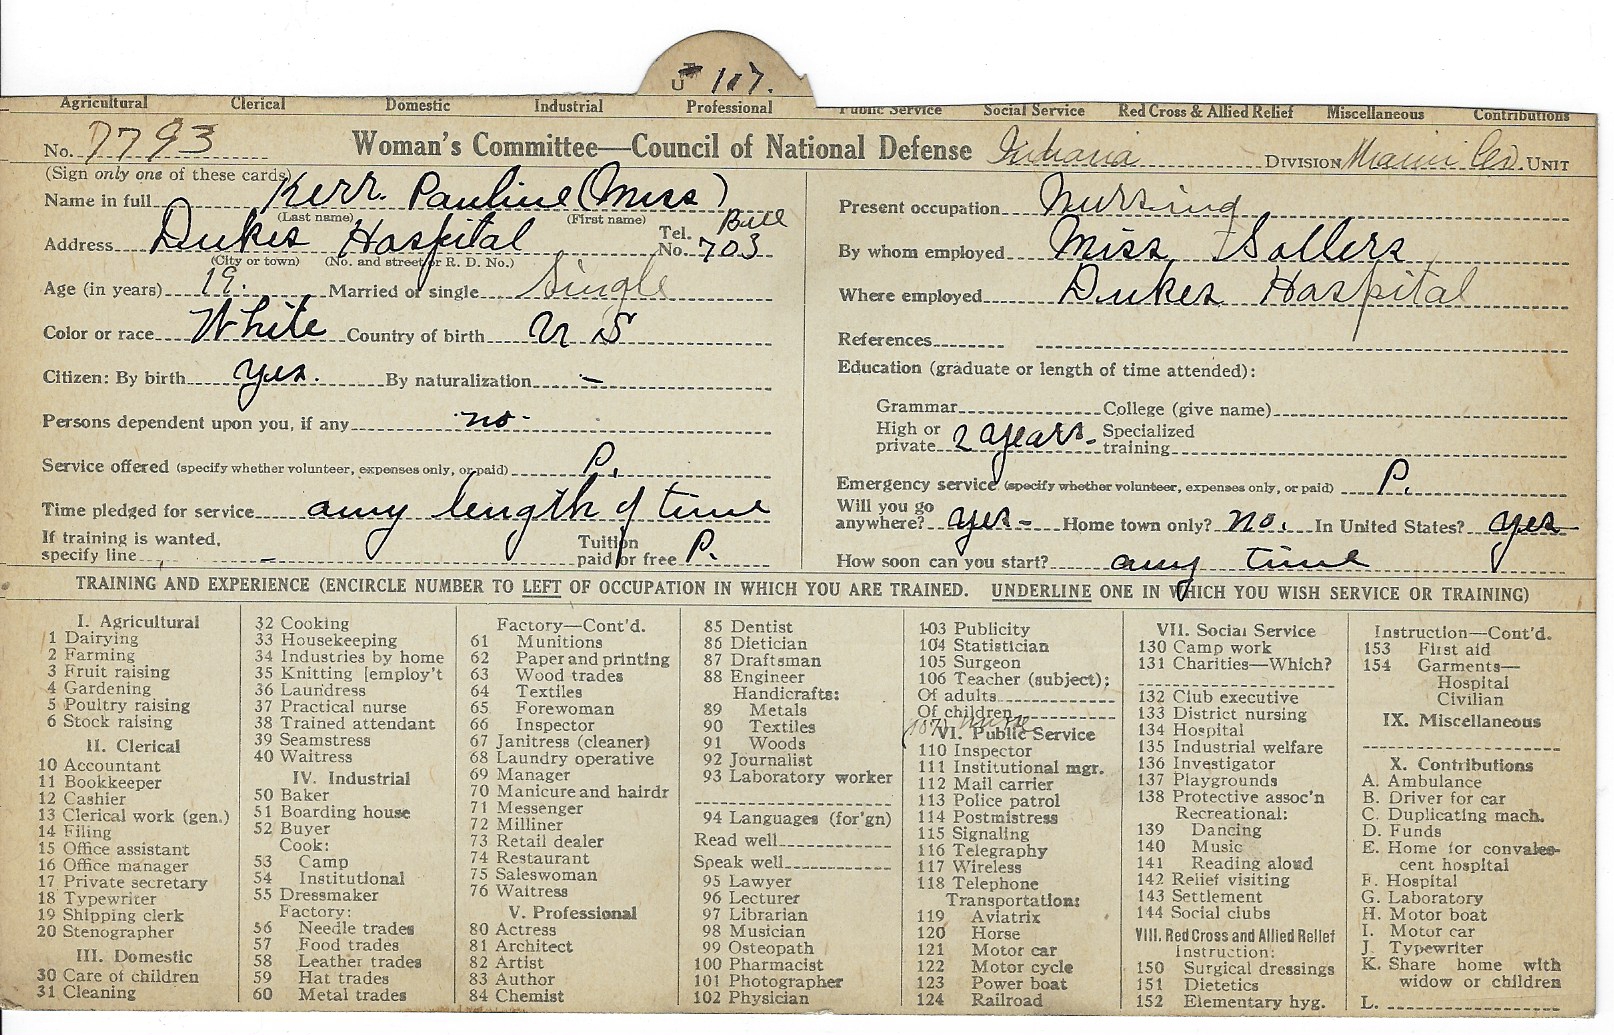 U 107.
Agricultural Clerical Domestic Industrial Professional Public Service Social Service Red Cross & Allied Relief Miscellaneous Contributions
No. 7793 Woman's Committee—Council of National Defense Indiana DIVISION Miami Co. UNIT
(Sign only one of these cards)
Name in full Kerr. Pauline (Miss)
(Last name) (First name)
Address Dukes Hospital Tel. No. Bell 703
(City or town) (No. and street or R. D. No.)
Age (in years) 19. Married or single Single
Color or race White Country of birth U S
Citizen: By birth yes. By naturalization –
Persons dependent upon you, if any no-
Service offered (specify whether volunteer, expenses only, or paid) P.
Time pledged for service any length of time
If training is wanted,
specify line – Tuition paid or free P.
Present occupation Nursing
By whom employed Miss Sollers
Where employed Dukes Hospital
References
Education (graduate or length of time attended):
Grammar College (give name)
High or private 2 years. Specialized training
Emergency service (specify whether volunteer, expenses only, or paid) P.
Will you go anywhere? yes- Home town only? no. In United States? yes
How soon can you start? any time
TRAINING AND EXPERIENCE (ENCIRCLE NUMBER TO LEFT OF OCCUPATION IN WHICH YOU ARE TRAINED. UNDERLINE ONE IN WHICH YOU WISH SERVICE OR TRAINING)
I. Agricultural
1 Dairying
2 Farming
3 Fruit raising
4 Gardening
5 Poultry raising
6 Stock raising
II. Clerical
10 Accountant
11 Bookkeeper
12 Cashier
13 Clerical work (gen.)
14 Filing
15 Office assistant
16 Office manager
17 Private secretary
18 Typewriter
19 Shipping clerk
20 Stenographer
III. Domestic
30 Care of children
31 Cleaning
32 Cooking
33 Housekeeping
34 Industries by home
35 Knitting [employ't
36 Laundress
37 Practical nurse
38 Trained attendant
39 Seamstress
40 Waitress
IV. Industrial
50 Baker
51 Boarding house
52 Buyer
Cook:
53 Camp
54 Institutional
55 Dressmaker
Factory:
56 Needle trades
57 Food trades
58 Leather trades
59 Hat trades
60 Metal trades
Factory—Cont'd.
61 Munitions
62 Paper and printing
63 Wood trades
64 Textiles
65 Forewoman
66 Inspector
67 Janitress (cleaner)
68 Laundry operative
69 Manager
70 Manicure and hairdr
71 Messenger
72 Milliner
73 Retail dealer
74 Restaurant
75 Saleswoman
76 Waitress
V. Professional
80 Actress
81 Architect
82 Artist
83 Author
84 Chemist
85 Dentist
86 Dietician
87 Draftsman
88 Engineer
Handicrafts:
89 Metals
90 Textiles
91 Woods
92 Journalist
93 Laboratory worker
94 Languages (for'gn)
Read well
Speak well
95 Lawyer
96 Lecturer
97 Librarian
98 Musician
99 Osteopath
100 Pharmacist
101 Photographer
102 Physician
103 Publicity
104 Statistician
105 Surgeon
106 Teacher (subject):
Of adults
Of children
(107) nurse
VI. Public Service
110 Inspector
111 Institutional mgr.
112 Mail carrier
113 Police patrol
114 Postmistress
115 Signaling
116 Telegraphy
117 Wireless
118 Telephone
Transportation:
119 Aviatrix
120 Horse
121 Motor car
122 Motor cycle
123 Power boat
124 Railroad
VII. Social Service
130 Camp work
131 Charities—Which?
132 Club executive
133 District nursing
134 Hospital
135 Industrial welfare
136 Investigator
137 Playgrounds
138 Protective assoc'n
Recreational:
139 Dancing
140 Music
141 Reading aloud
142 Relief visiting
143 Settlement
144 Social clubs
VIII. Red Cross and Allied Relief
Instruction:
150 Surgical dressings
151 Dietetics
152 Elementary hyg.
Instruction—Cont'd.
153 First aid
154 Garments—
Hospital
Civilian
IX. Miscellaneous
X. Contributions
A. Ambulance
B. Driver for car
C. Duplicating mach.
D. Funds
E. Home for convales-
cent hospital
F. Hospital
G. Laboratory
H. Motor boat
I. Motor car
J. Typewriter
K. Share home with
widow or children
L.